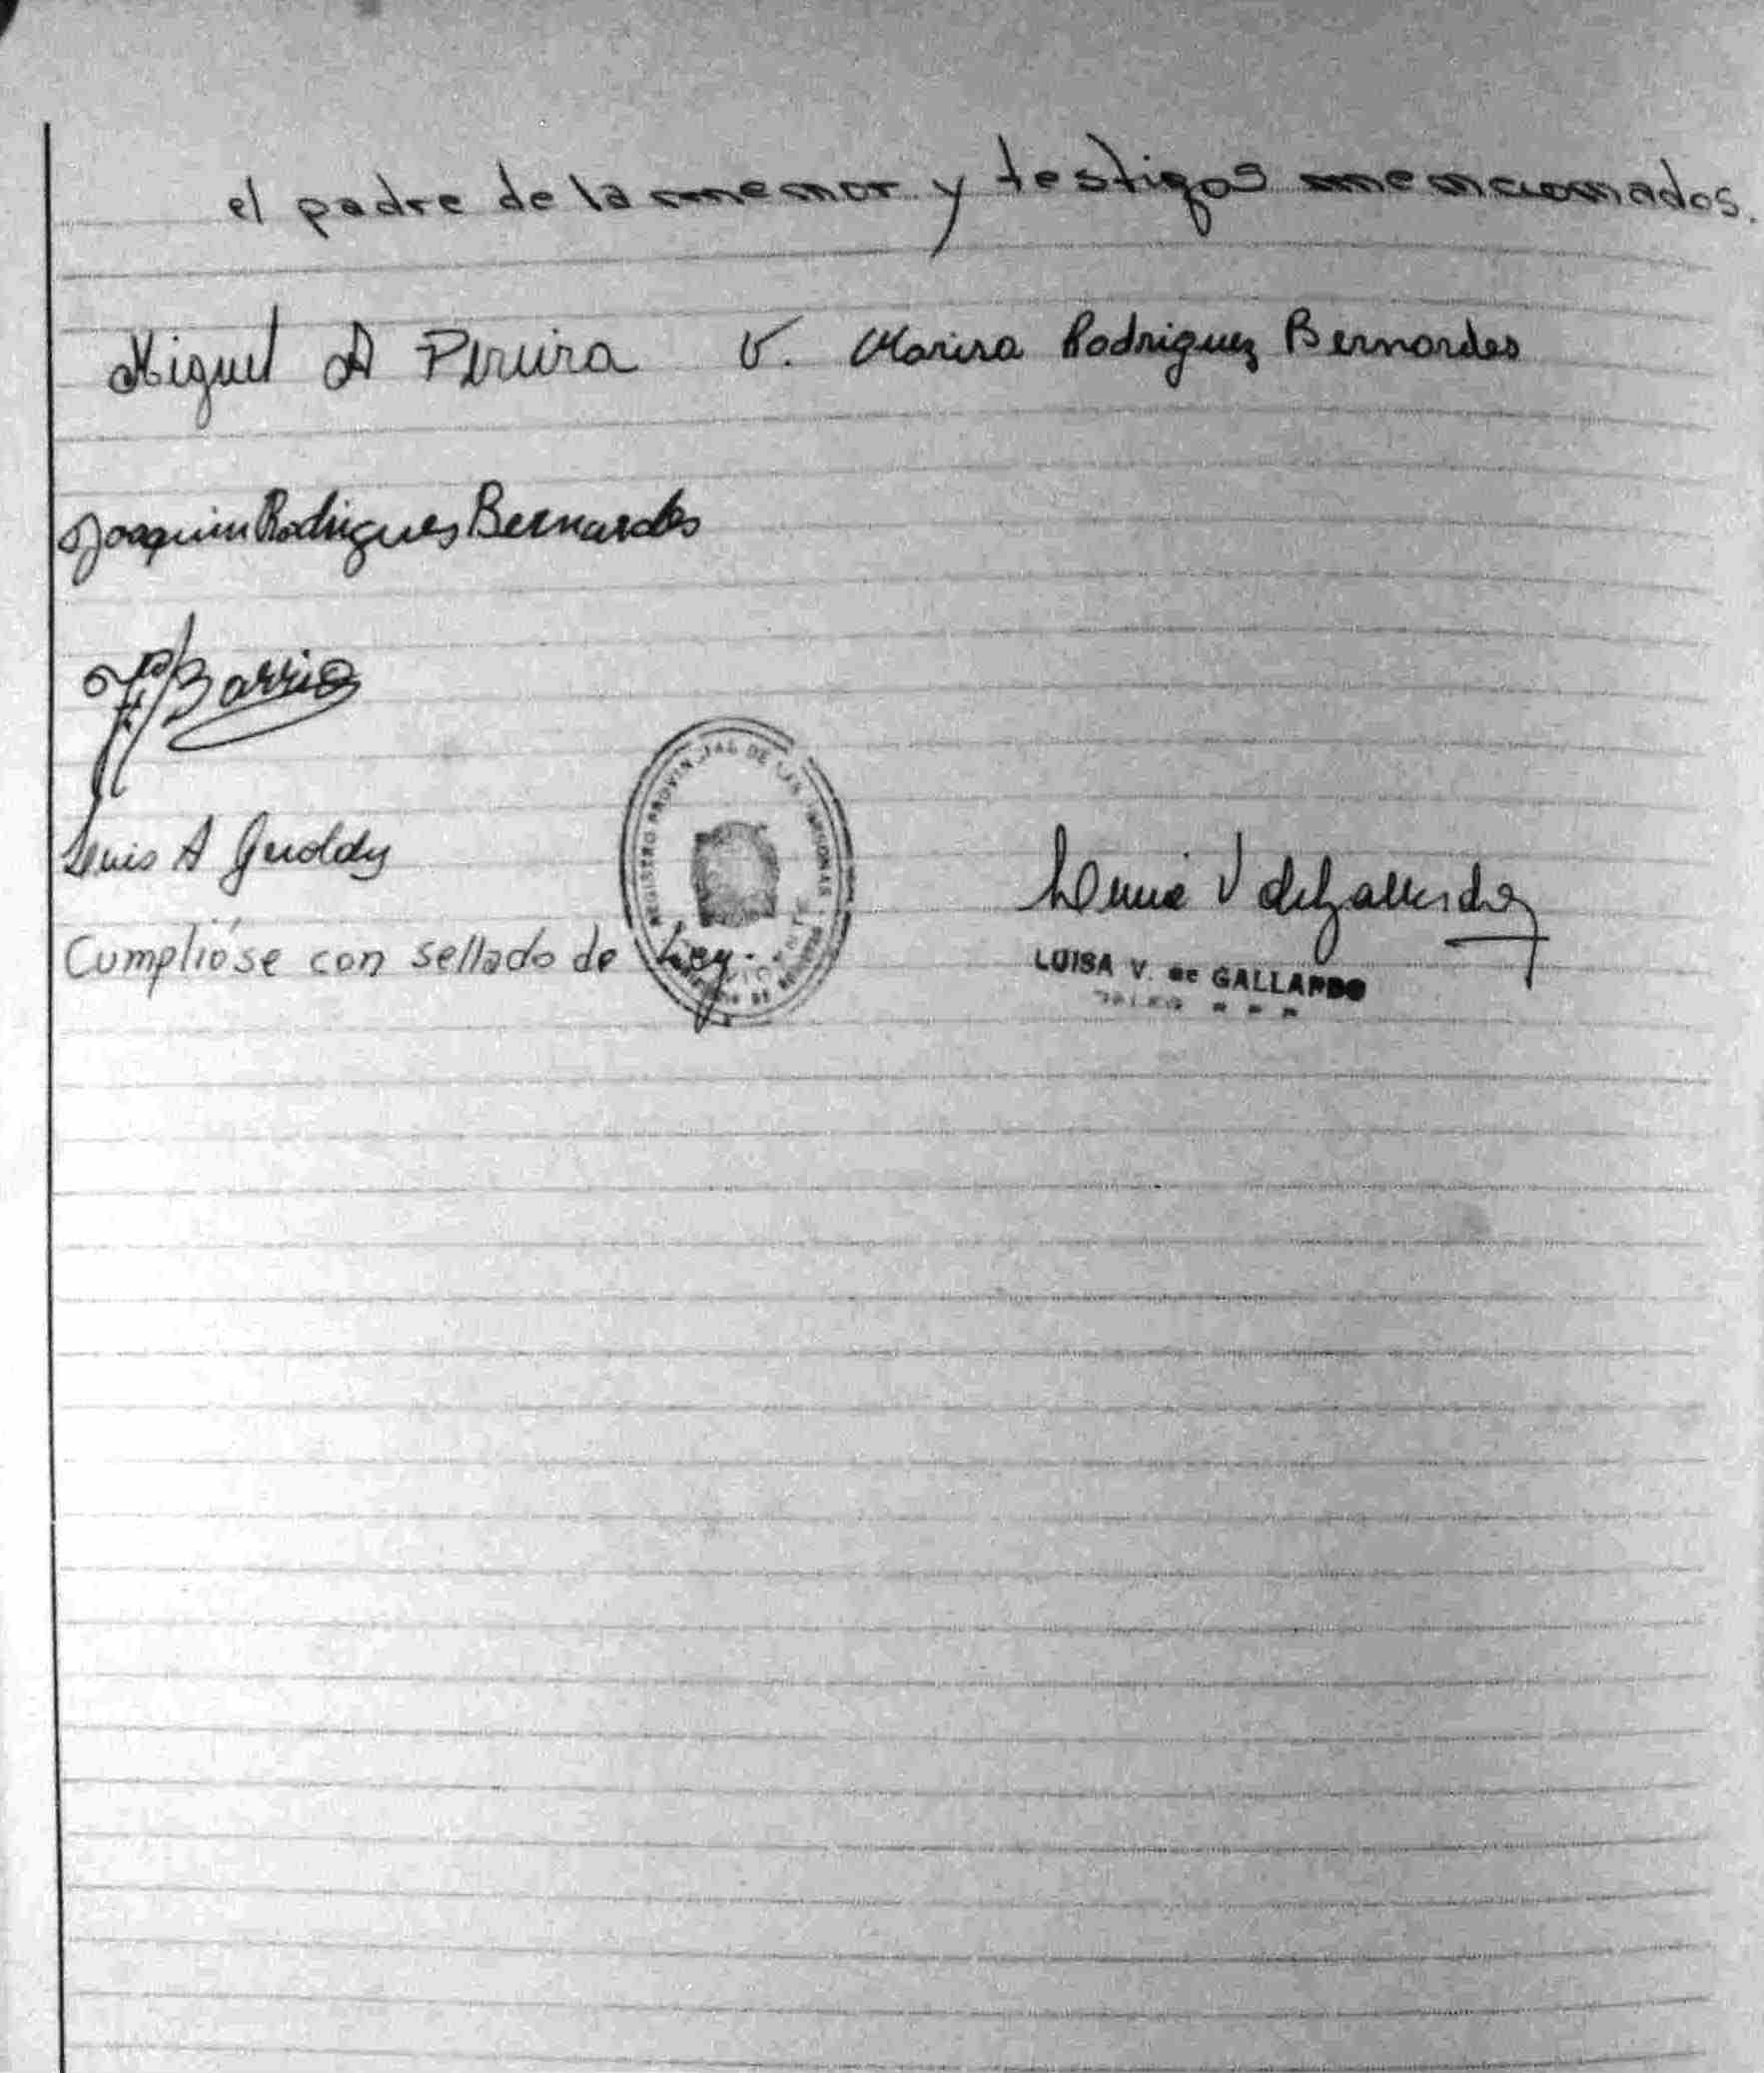 el padre de la menor y testigos mencionados.
Miguel A Pereira V. Marisa Rodriguez Bernardes
Joaquin Rodrigues Bernardes
Barrio
Luis A
Cumplióse con sellado de Ley.
REGISTRO PROVINCIAL DE LAS PERSONAS
Luisa V de Gallardo
LUISA V. de GALLARDO